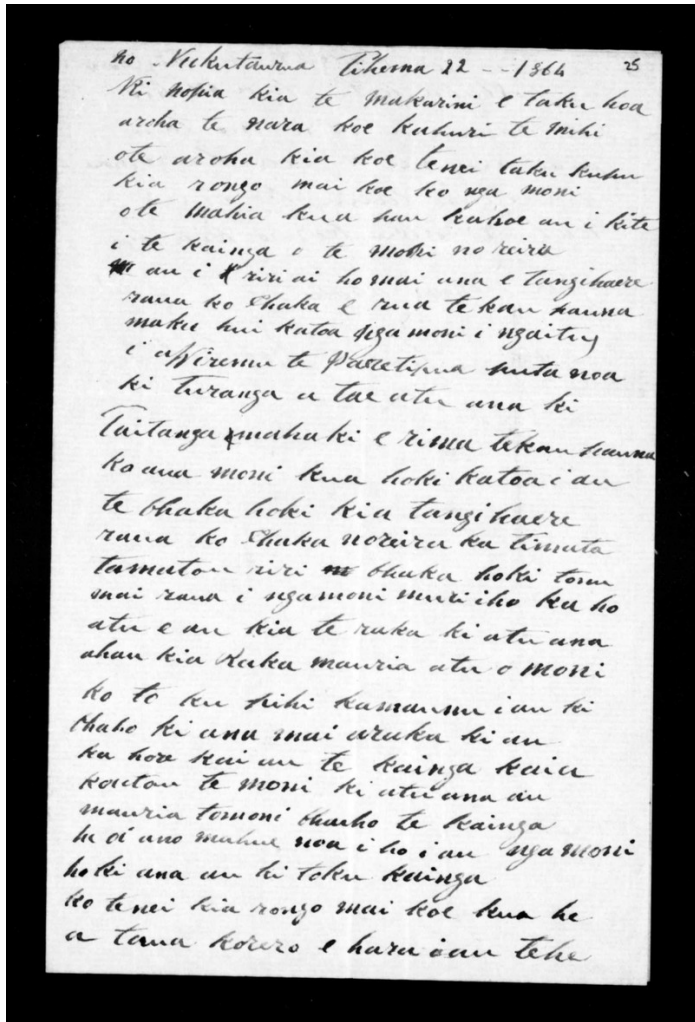 no Nukutaurua Tihema 22 -- 1864
25
Ki Nopia kia te makarini e taku hoa
aroha te nara koe kahuri te mihi
ote aroha kia koe tenei taku kupu
kia rongo mai koe ko nga moni
ote mahia kua hau kahoe au i kite
i te kainga o te moni no reira
au i riri ai homai ana e tangihaere
raua ko Ohaka e rua tekau pauna
maku hui katoa nga moni i ngaitu
i a Wiremu te Paretipua puta noa
ki Turanga a tae atu ana ki
Taitanga mahaki e rima tekau pauna
ko aua moni kua hoki katoa i au
te Ohaka hoki kia tangihaere
raua ko Ohaka noreira ka timata
tamatou riri Ohaka hoki tonu
mai raua i ngamoni muri iho ka ho
atu e au kia te raka ki atu ana
ahau kia Raka mauria atu o moni
ko to ku pihi kamaunu i au ki
Ohaho ki ana mai araka ki au
ka hore kai au te kainga kaia
koutou te moni ki atu ana au
mauria tomoni Ohaho te kainga
he oi ano mahue noa i ho i au nga moni
hoki ana au ki toku kainga
ko tenei kia rongo mai koe kua he
a taua korero e hara i au tehe